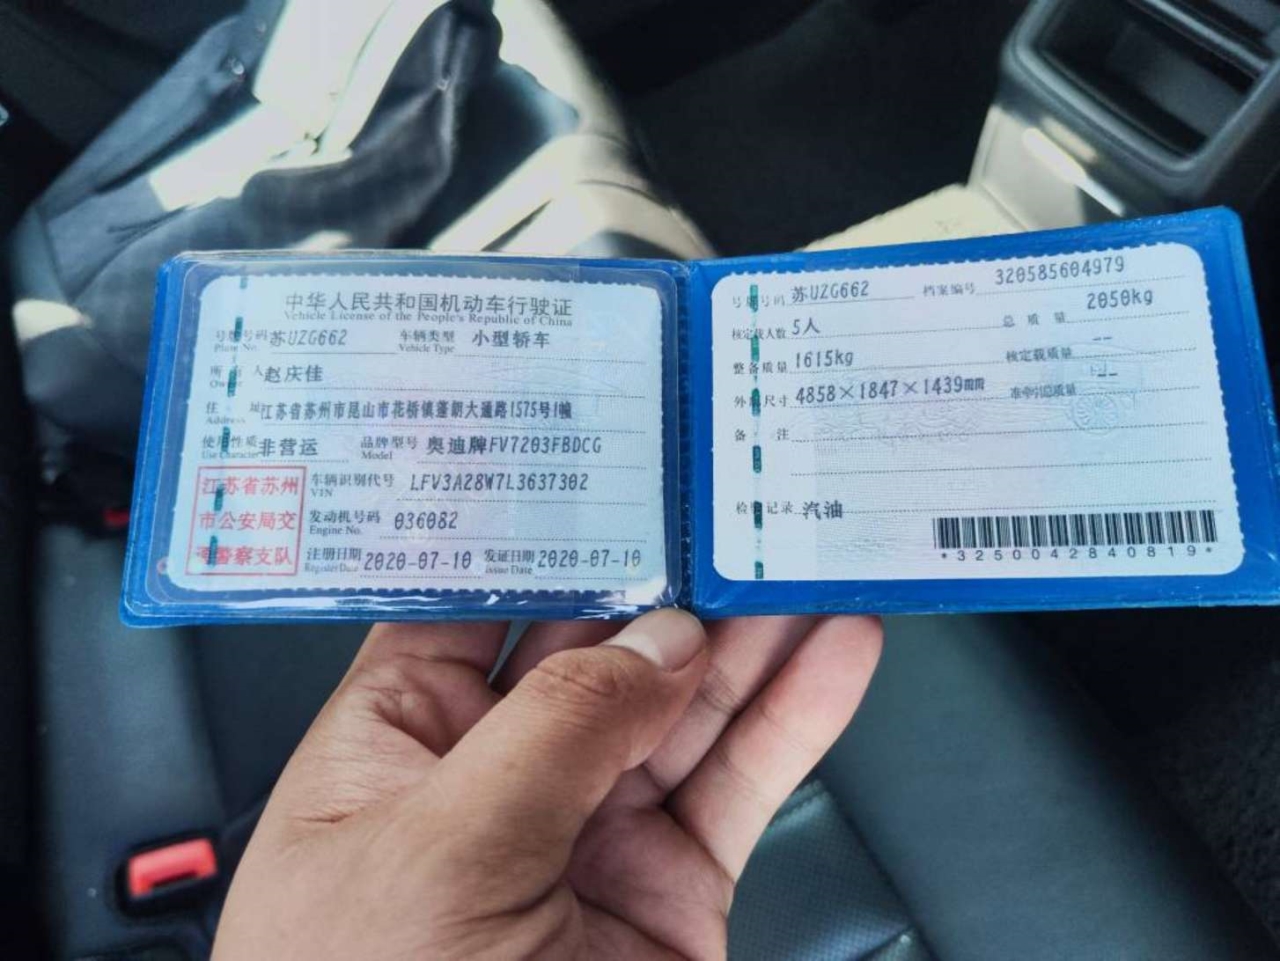 中华人民共和国机动车行驶证
Vehicle License of the People's Republic of China
号牌号码 苏UZG662 车辆类型 小型轿车
Plate No. Vehicle Type
所有人 赵庆佳
Owner
住址 江苏省苏州市昆山市花桥镇蓬朗大通路1575号1幢
Address
使用性质 非营运 品牌型号 奥迪牌FV7203FBDCG
Use Character Model
江苏省苏州
市公安局交
警察支队
车辆识别代号 LFV3A28W7L3637302
VIN
发动机号码 036082
Engine No.
注册日期 2020-07-10 发证日期 2020-07-10
Register Date Issue Date
号牌号码 苏UZG662 档案编号 320585604979
核定载人数 5人 总质量 2050kg
整备质量 1615kg 核定载质量 --
外廓尺寸 4858×1847×1439mm 准牵引总质量 --
备注
检验记录 汽油
*3250042840819*